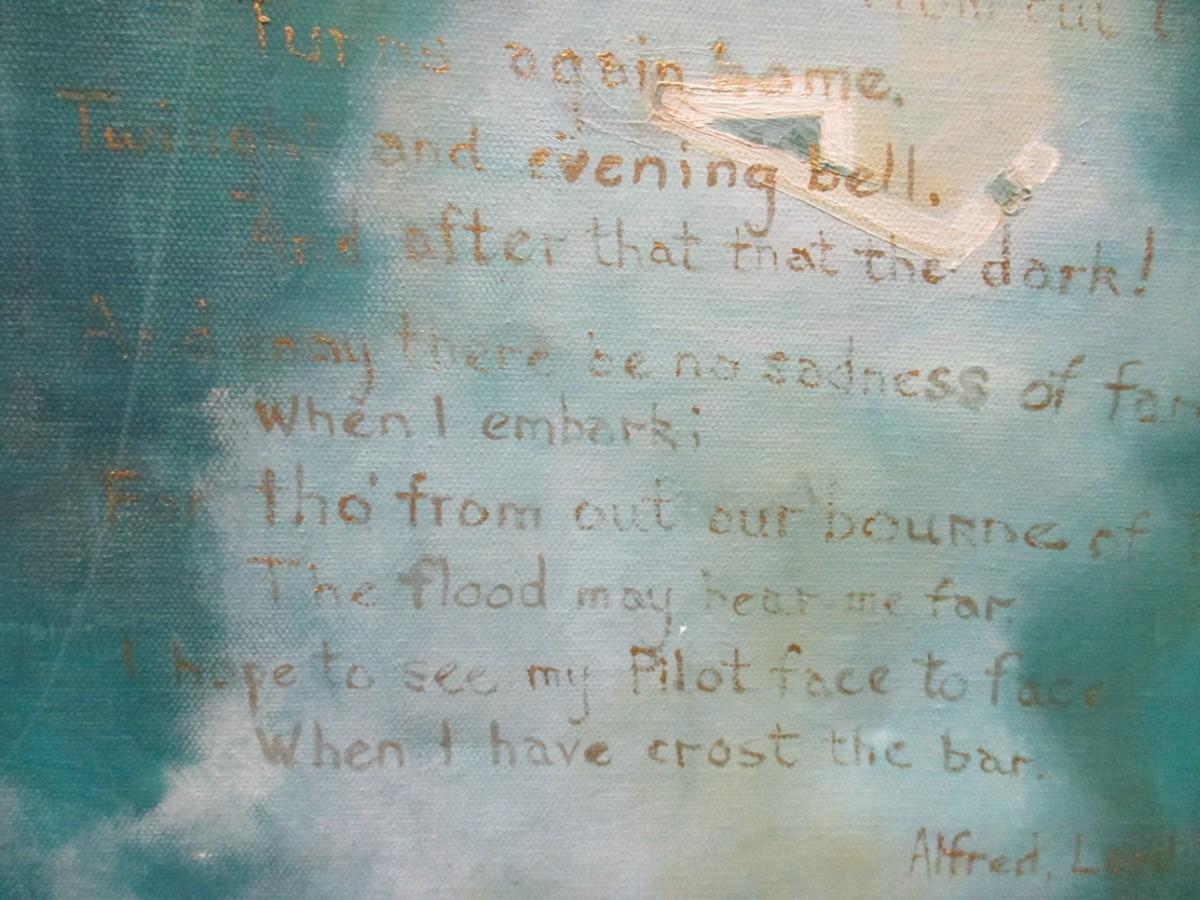 from out t
Turns again home.
Twilight and evening bell,
And after that that the dark!
And may there be no sadness of far
When I embark;
For tho' from out our bourne of
The flood may bear me far,
I hope to see my Pilot face to face
When I have crost the bar.
Alfred, Lord